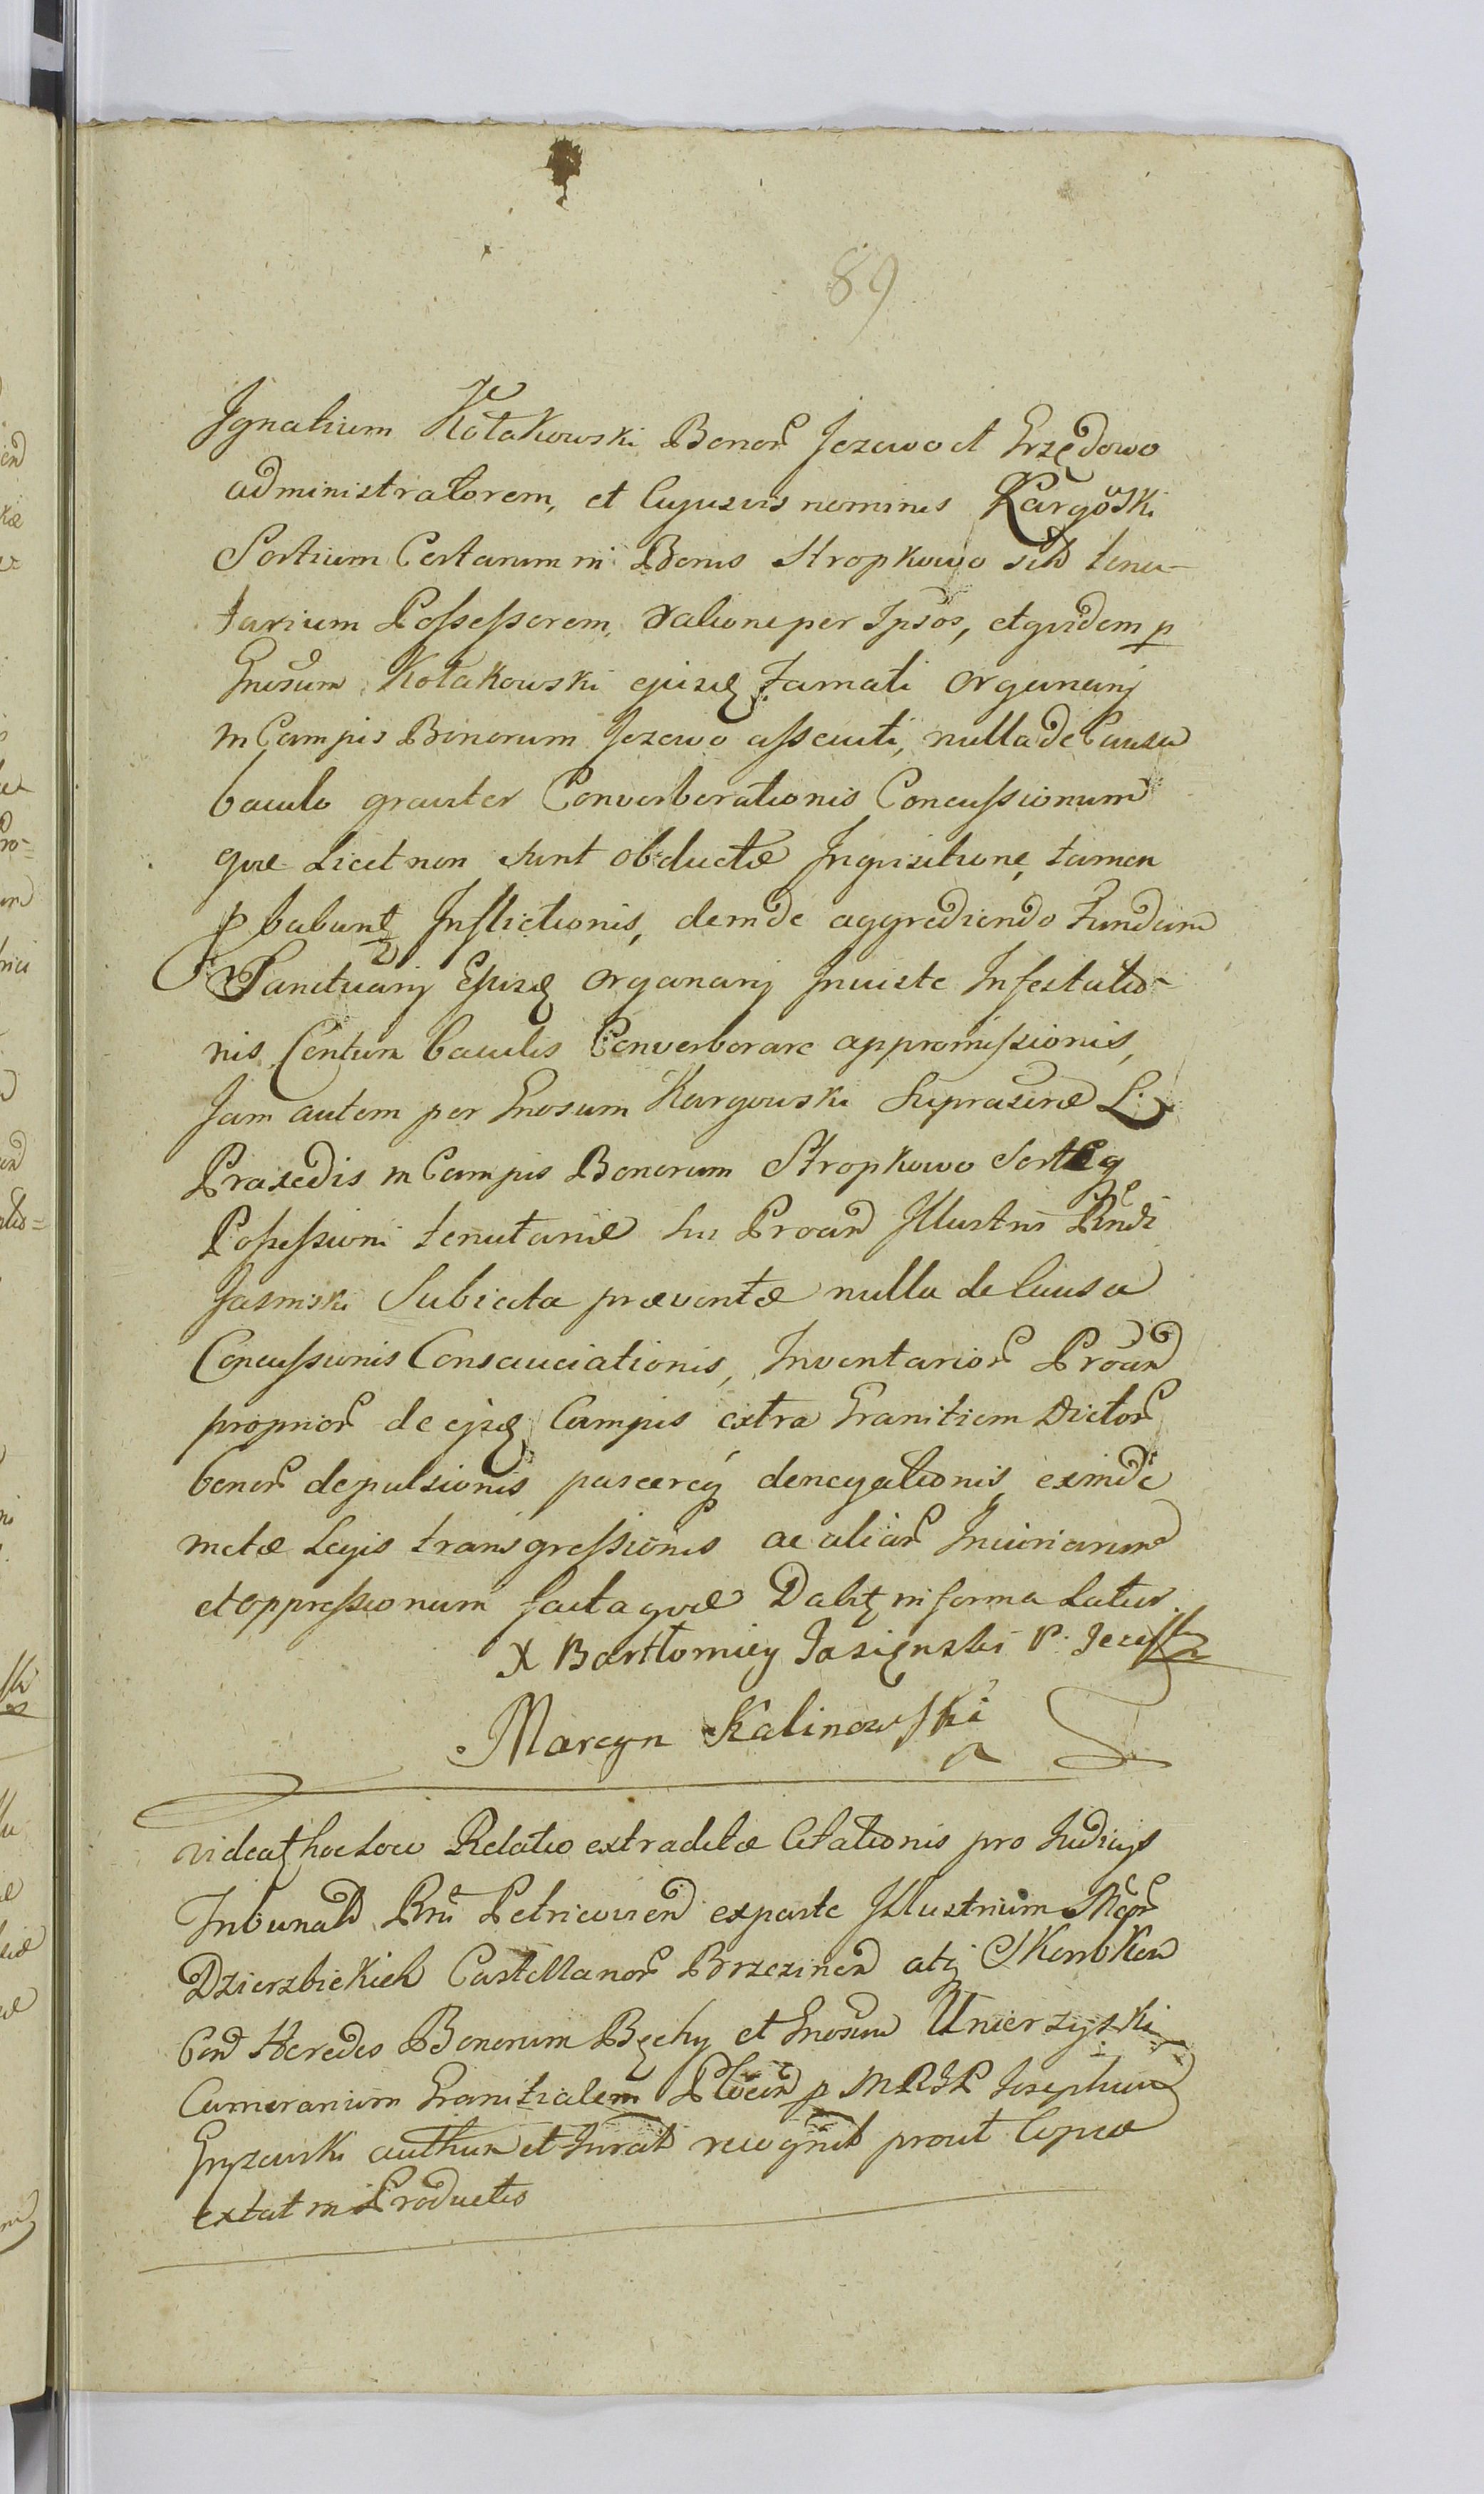 89
Ignatium Kołakowski Bonor Jezewo et Grzędowo
administratorem, et Cujusvis nominis Kargoski
Sortium Certarum in Bonis Stropkowo sitt tenu-
tarium Possessorem, ratione per Ipsos, et quidem p
Gnosum Kołakowski ejusq famati Organarij
in Campis Bonorum Jezewo assecuti, nulla de Causa
baculo graviter Converberationis Concussionum
quæ Licet non sunt obductæ Inquisitione, tamen
pbabunt Inflictionis, deinde aggrediendo Fundum
Sanctuarij Ejusq Organarij Injuste Infestatio-
nis, Centum baculis Converberare appromissionis,
Jam autem per Gnosum Kargowski Supra
Praxedis in Campis Bonorum Stropkowo Sort
Possessioni tenutariæ Sui Procur Illustris Rndi
Jasinski Subjecta præventæ nulla de Causa
Concussionis Consauciationis, Inventarior
proprior de ejsq Campis extra Granitiem Dictor
bonor depulsionis pascereq denegationis, exinde
metæ Legis transgressionis ac aliar Injuriarum
et oppressionum factaque Dabit in forma Latius.
X Bartłomiey Jasięnski P.
Marcyn Kalinowski
videat hoc loco Relatio extraditæ Citationis pro Judicijs
Tribunalb Rni Petricovien ex parte Illustrium
Dzierzbickich Castellanor Brzezinen atq
Bon Heredes Bonorum Bęchy et Gnosum Unierzyski
Camerarium Granitialem Plocen p Josephum
Gryzewski authen et Jurat recognit prout Copia
extat in Productis